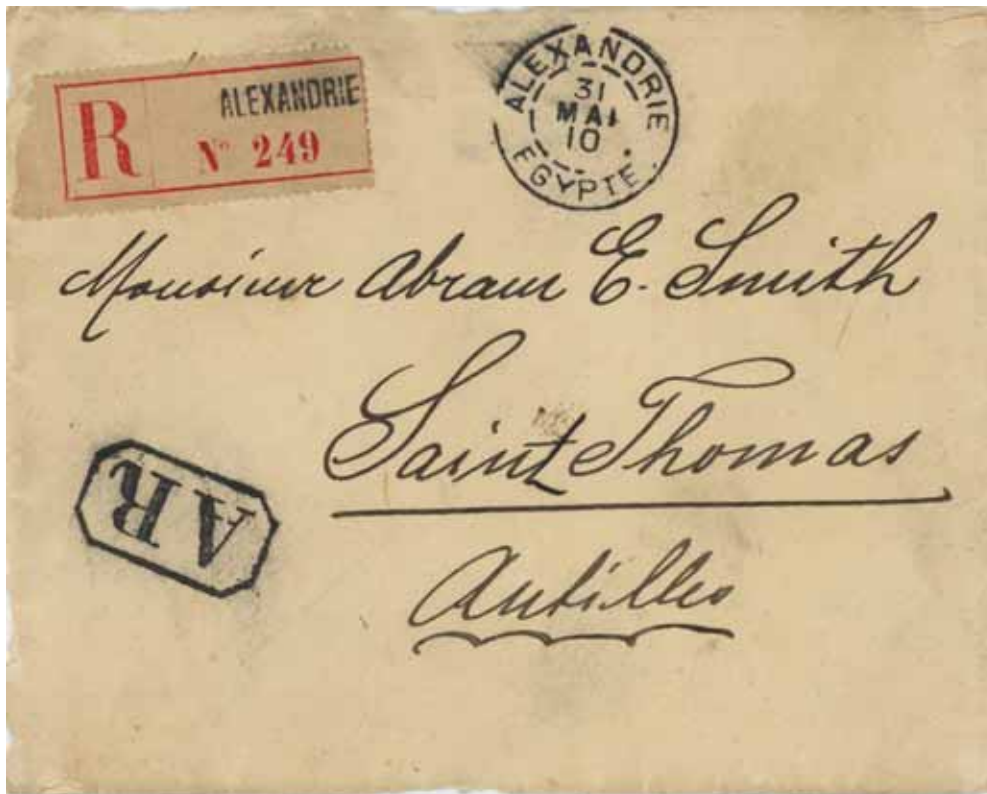 R
ALEXANDRIE
N° 249
ALEXANDRIE
31
MAI
10
EGYPTE
Monsieur Abram E. Smith
Saint Thomas
Antilles
AR